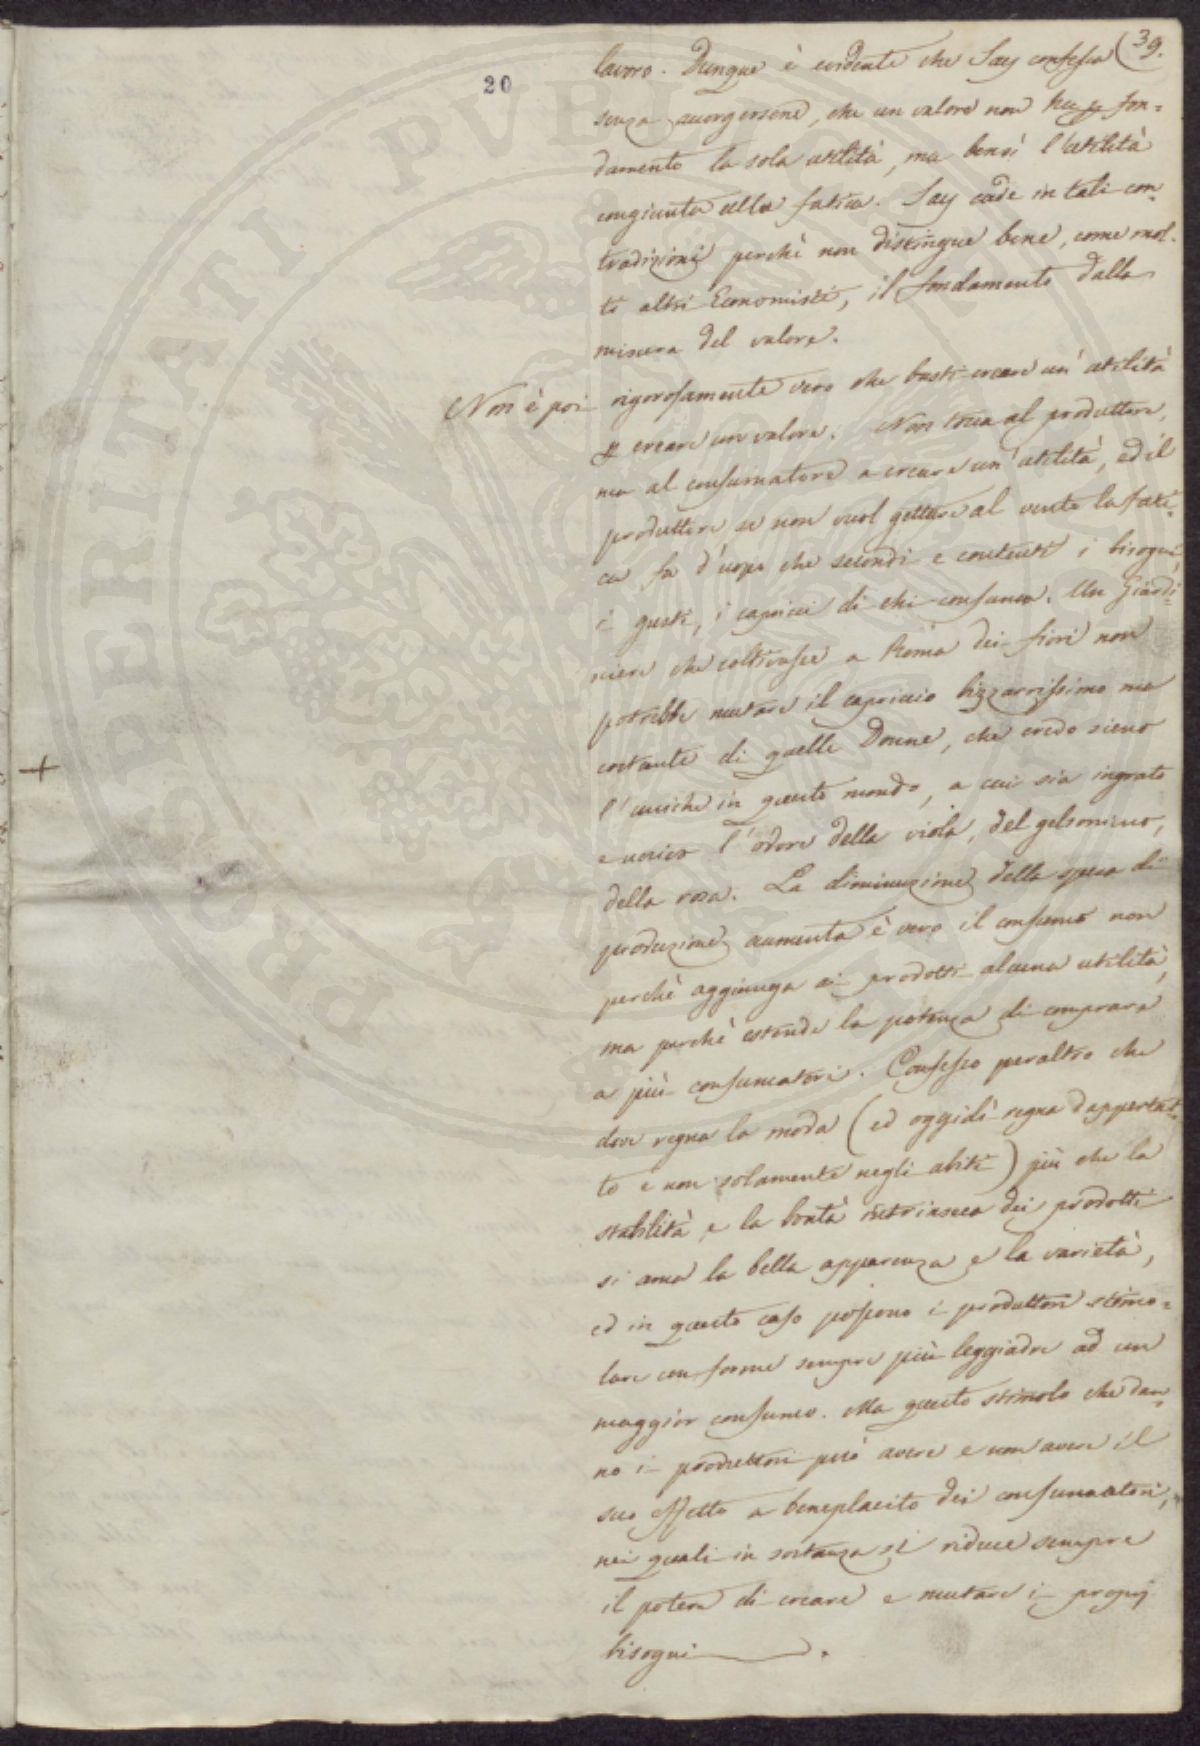 39.
20
lavoro. Dunque è evidente che Say confessa
senza accorgersene, che un valore non ha p fon=
damento la sola utilità, ma bensì l'utilità
congiunta alla fatica. Say cade in tali con=
tradizioni perchè non distingue bene, come mol=
ti altri Economisti, il fondamento dalla
misura del valore.
Non è poi rigorosamente vero che basti creare un'utilità
p creare un valore. Non tocca al produttore,
ma al consumatore a creare un'utilità, ed il
produttore se non vuol gettare al vento la fati=
ca fa d'uopo che secondi e contenti i bisogni,
i gusti, i capricci di chi consuma. Un Giardi=
niere che coltivasse a Roma dei fiori non
potrebbe mutare il capriccio bizzarrissimo ma
costante di quelle Donne, che credo sieno
l'uniche in questo mondo, a cui sia ingrato
e nocivo l'odore della viola, del gelsomino,
della rosa. La diminuzione della spesa di
produzione aumenta è vero il consumo non
perchè aggiunga ai prodotti alcuna utilità,
ma perchè estende la potenza di comprare
a più consumatori. Confesso peraltro che
dove regna la moda (ed oggidì regna dappertut=
to e non solamente negli abiti) più che la
stabilità e la bontà intrinseca dei prodotti
si ama la bella apparenza e la varietà,
ed in questo caso possono i produttori stimo=
lare con forme sempre più leggiadre ad un
maggior consumo. Ma questo stimolo che dan=
no i produttori può avere e non avere il
suo effetto a beneplacito dei consumatori,
nei quali in sostanza si riduce sempre
il potere di creare e mutare i proprj
bisogni.
PROSPERITATI PVBLICAE